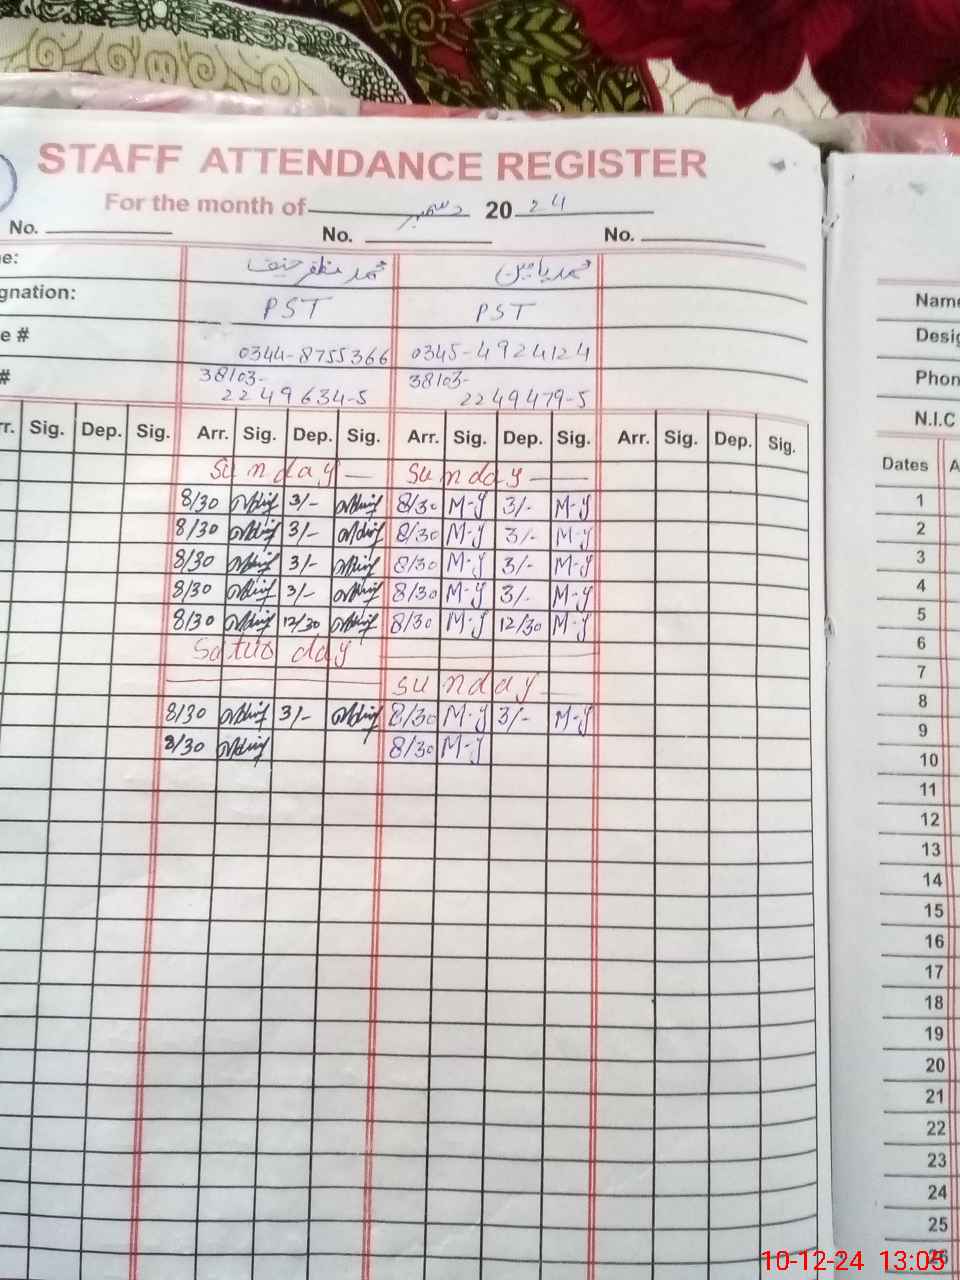 STAFF ATTENDANCE REGISTER
For the month of دسمبر 20 24
No. No. No.
e: محمد مظفر حنیف محمد یامین
gnation: PST PST
e # 0344-8755366 0345-4924124
# 38103-2249634-5 38103-2249479-5
rr. Sig. Dep. Sig. Arr. Sig. Dep. Sig. Arr. Sig. Dep. Sig. Arr. Sig. Dep. Sig.
Sunday — Sunday —
8/30 3/- 8/30 M-Y 3/- M-Y
8/30 3/- 8/30 M-Y 3/- M-Y
8/30 3/- 8/30 M-Y 3/- M-Y
8/30 3/- 8/30 M-Y 3/- M-Y
8/30 12/30 8/30 M-Y 12/30 M-Y
Satur day
Sunday —
8/30 3/- 8/30 M-Y 3/- M-Y
8/30 8/30 M-Y
Name
Desig
Phon
N.I.C
Dates A
1
2
3
4
5
6
7
8
9
10
11
12
13
14
15
16
17
18
19
20
21
22
23
24
25
26
10-12-24 13:05